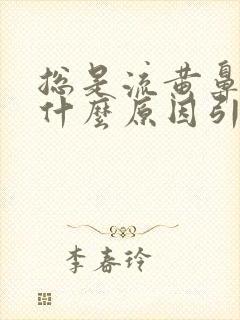 总是流黄鼻
什麼原因引
李春玲